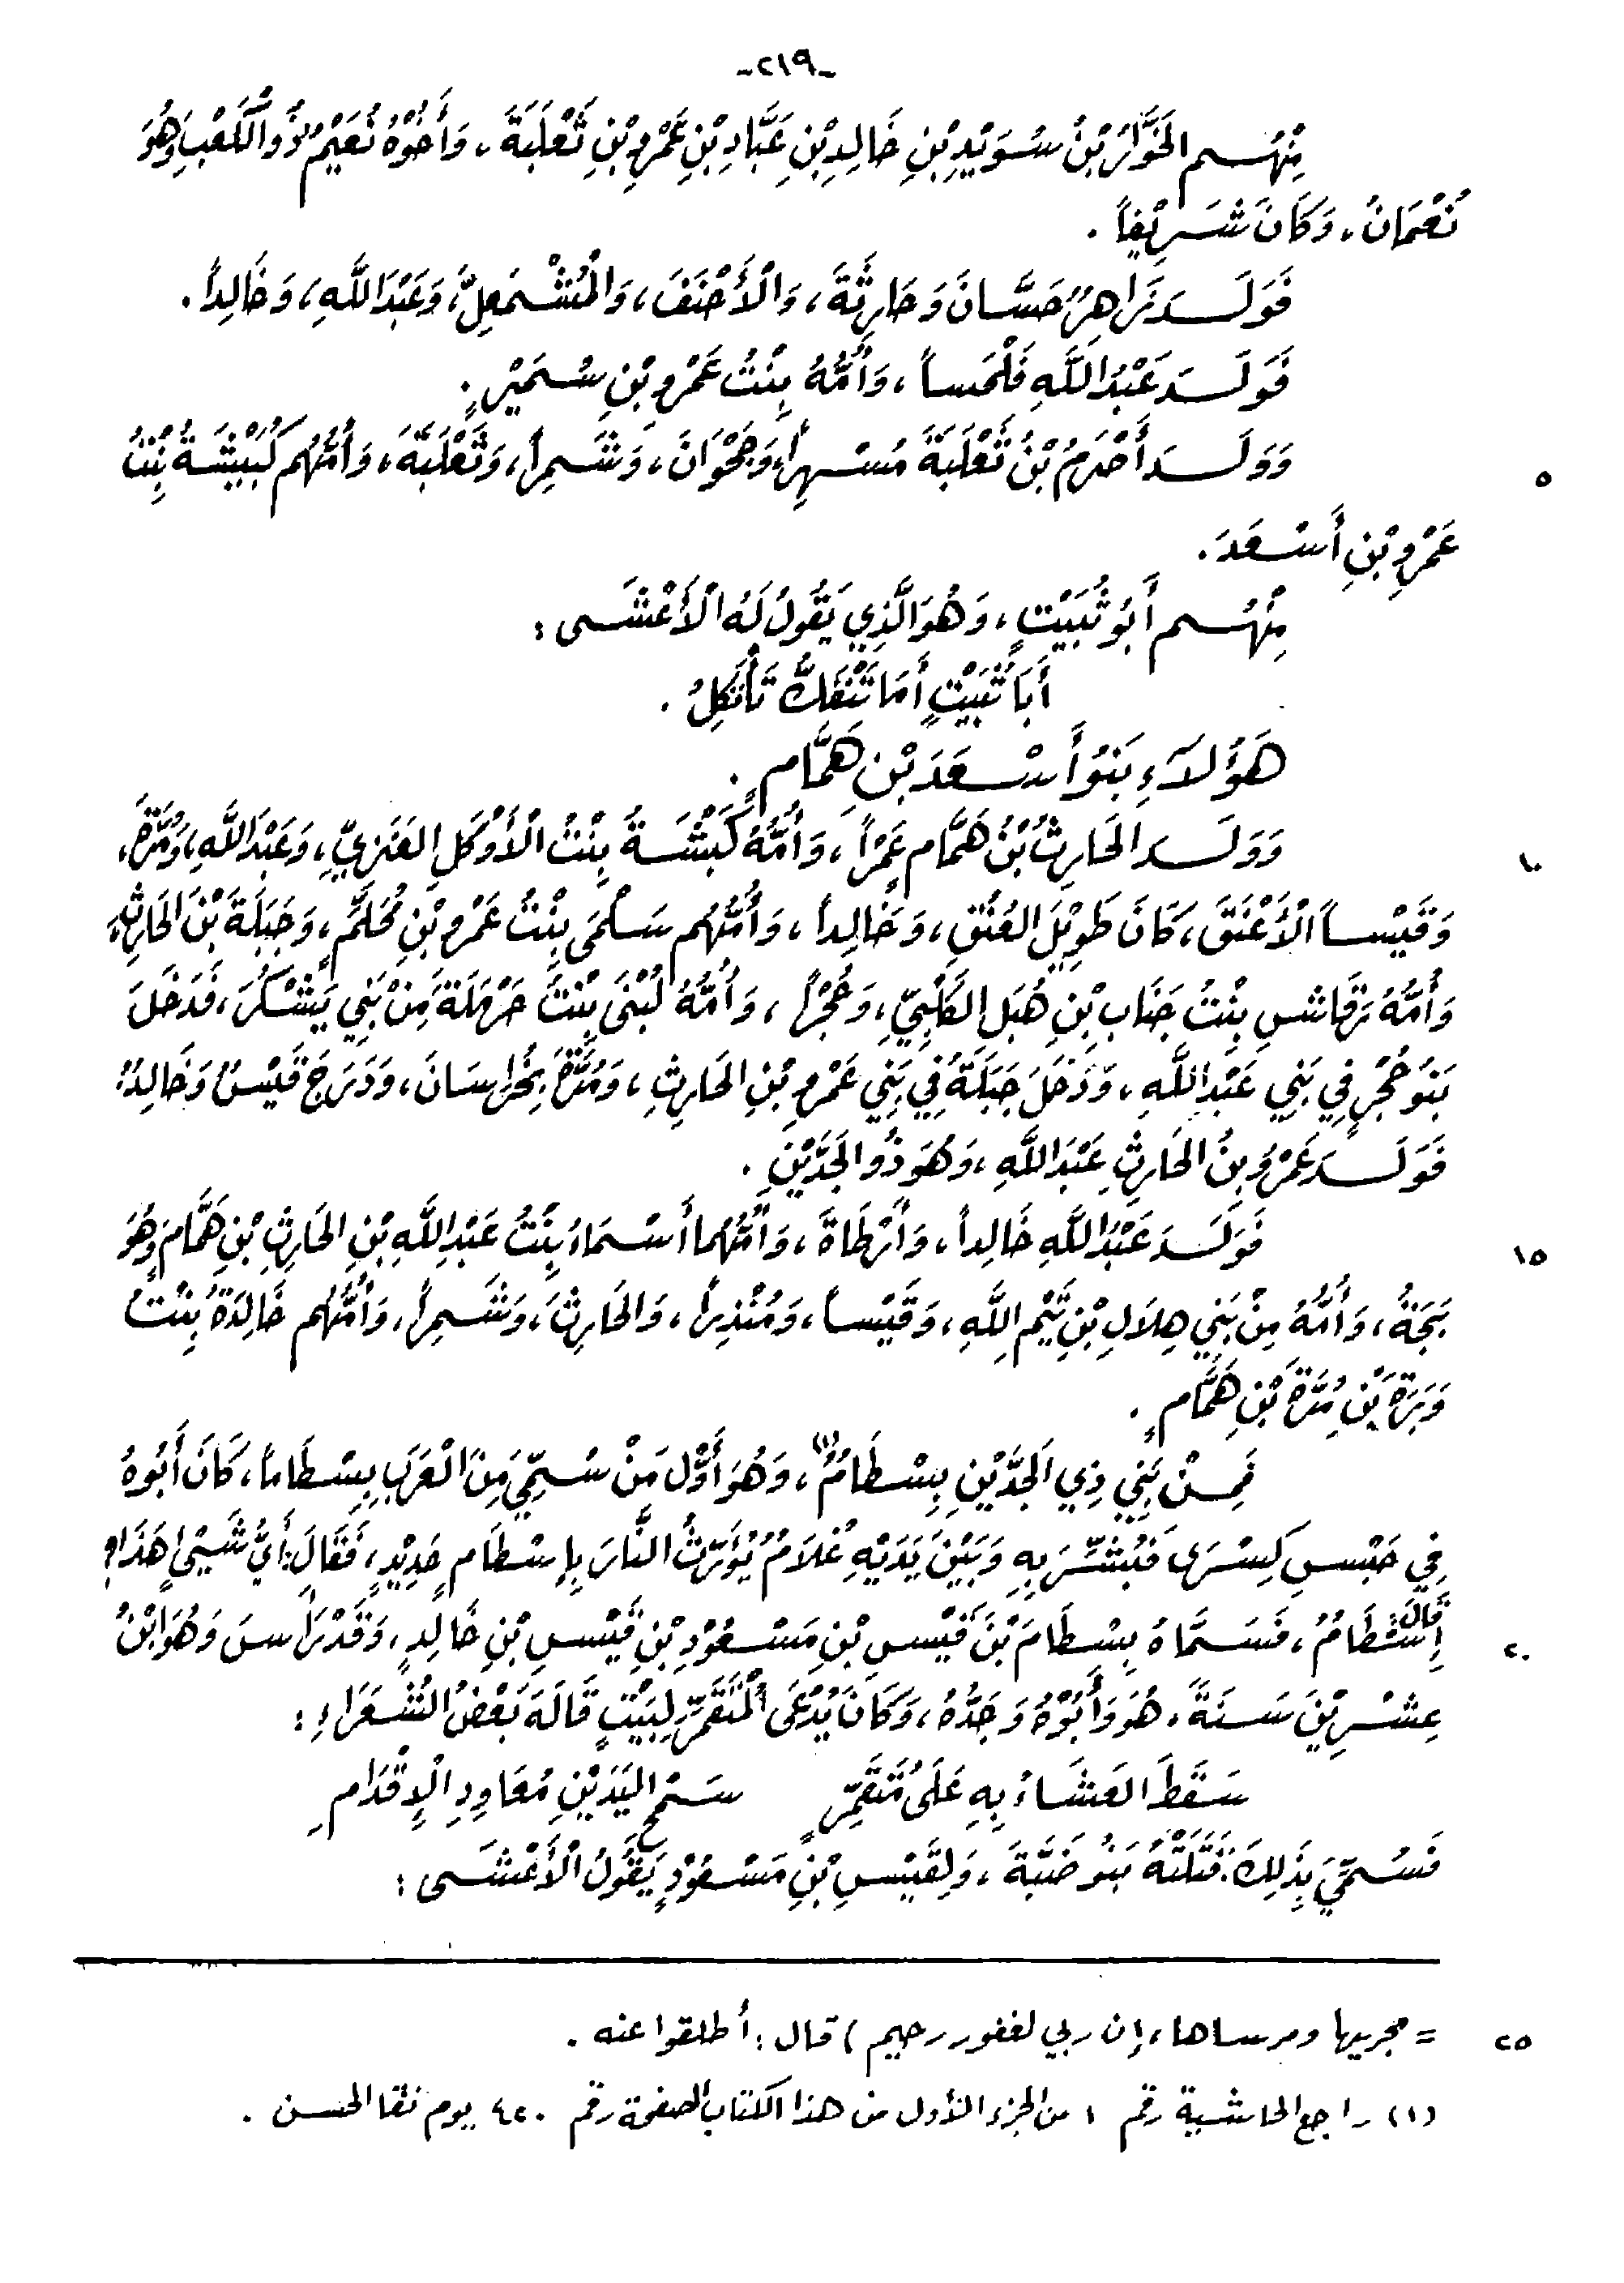 -٢١٩-
مِنْهُم الخَوَّارُ بْنُ سُوَيْدِ بْنِ خَالِدِ بْنِ عَبَّادِ بْنِ عَمْرِو بْنِ ثَعْلَبَةَ، وَأَخُوْهُ نُعَيْمٌ ذُو الْكَعْبِ وَهُوَ
نُعْمَانُ، وَكَانَ شَرِيْفاً .
فَوَلَدَ زَاهِرٌ حَسَّانَ وَحَارِثَةَ، وَالْأَحْنَفَ، وَالْمُشْمَعِلَّ، وَعَبْدَ اللَّهِ، وَخَالِداً .
فَوَلَدَ عَبْدُ اللَّهِ فَلْحَساً، وَأُمُّهُ بِنْتُ عَمْرِو بْنِ سُمَيْرٍ .
وَوَلَدَ أَخْدَمُ بْنُ ثَعْلَبَةَ مُسْهِراً، وَجَحْوَانَ، وَشَمِراً، وَثَعْلَبَةَ، وَأُمُّهُم كُبَيْشَةُ بِنْتُ
٥
عَمْرِو بْنِ أَسْعَدَ.
مِنْهُم أَبُو ثُبَيْتٍ، وَهُوَ الَّذِي يَقُولُ لَهُ الْأَعْشَى :
أَبَا ثُبَيْتٍ أَمَا تَنْفَكُّ تَأْتَكِلُ .
هَؤُلَاءِ بَنُو أَسْعَدَ بْنِ هَمَّامٍ .
وَوَلَدَ الحَارِثُ بْنُ هَمَّامٍ عَمْراً، وَأُمُّهُ كَبْشَةُ بِنْتُ الْأَوْكَلِ العَنَزِيِّ، وَعَبْدَ اللَّهِ، وَمُرَّةَ،
١٠
وَقَيْساً الْأَعْنَقَ، كَانَ طَوِيْلَ العُنُقِ، وَخَالِداً، وَأُمُّهُم سَلْمَى بِنْتُ عَمْرِو بْنِ مُحَلِّمٍ، وَجَبَلَةَ بْنَ الحَارِثِ،
وَأُمُّهُ رَقَاشِ بِنْتُ جَنَابِ بْنِ هُبَلٍ الكَلْبِيِّ، وَحُجْراً، وَأُمُّهُ لُبْنَى بِنْتُ حَرْمَلَةَ مِنْ بَنِي يَشْكُرَ، فَدَخَلَ
بَنُو حُجْرٍ فِي بَنِي عَبْدِ اللَّهِ، وَدَخَلَ جَبَلَةُ فِي بَنِي عَمْرِو بْنِ الحَارِثِ، وَمُرَّةُ بِخُرَاسَانَ، وَدَرَجَ قَيْسٌ وَخَالِدٌ.
فَوَلَدَ عَمْرُو بنُ الحَارِثِ عَبْدَ اللَّهِ، وَهُوَ ذُو الجَدَّيْنِ .
فَوَلَدَ عَبْدُ اللَّهِ خَالِداً، وَأَرْطَاةَ، وَأُمُّهُمَا أَسْمَاءُ بِنْتُ عَبْدِ اللَّهِ بْنِ الحَارِثِ بْنِ هَمَّامٍ وَهُوَ
١٥
بَجَةُ، وَأُمُّهُ مِنْ بَنِي هِلَالِ بْنِ تَيْمِ اللَّهِ، وَقَيْساً، وَمُنْذِراً، وَالحَارِثَ، وَشَمِراً، وَأُمُّهُم خَالِدَةُ بِنْتُ
وَبَرَةَ بْنِ مُرَّةَ بْنِ هَمَّامٍ .
فَمِنْ بَنِي ذِي الجَدَّيْنِ بِسْطَامٌ (١)، وَهُوَ أَوَّلُ مَنْ سُمِّيَ مِنَ الْعَرَبِ بِسْطَاماً، كَانَ أَبُوهُ
فِي حَبْسِ كِسْرَى فَبُشِّرَ بِهِ وَبَيْنَ يَدَيْهِ غُلَامٌ يُؤَرِّثُ النَّارَ بِإِسْطَامٍ حَدِيْدٍ، فَقَالَ: أَيُّ شَيْءٍ هَذَا؟
قَالَ: إِسْطَامٌ، فَسَمَّاهُ بِسْطَامَ بْنَ قَيْسِ بْنِ مَسْعُوْدِ بْنِ قَيْسِ بْنِ خَالِدٍ، وَقَدْ رَأَسَ وَهُوَ ابْنُ
٢٠
عِشْرِيْنَ سَنَةً، هُوَ وَأَبُوْهُ وَجَدُّهُ، وَكَانَ يُدْعَى الْمُتَقَمِّرَ لِبَيْتٍ قَالَهُ بَعْضُ الشُّعَرَاءِ :
سَقَطَ العَشَاءُ بِهِ عَلَى مُتَقَمِّرٍ سَمْحِ اليَدَيْنِ مُعَاوِدِ الْإِقْدَامِ
فَسُمِّيَ بِذَلِكَ. قَتَلَتْهُ بَنُو ضَبَّةَ، وَلِقَيْسِ بْنِ مَسْعُوْدٍ يَقُولُ الْأَعْشَى :
= مجريها ومرساها، إن ربي لغفور رحيم) قال : أطلقوا عنه .
٢٥
(١) راجع الحاشية رقم ١ من الجزء الأول من هذا الكتاب الصفحة رقم ٤٢٠ يوم نقا الحسن .